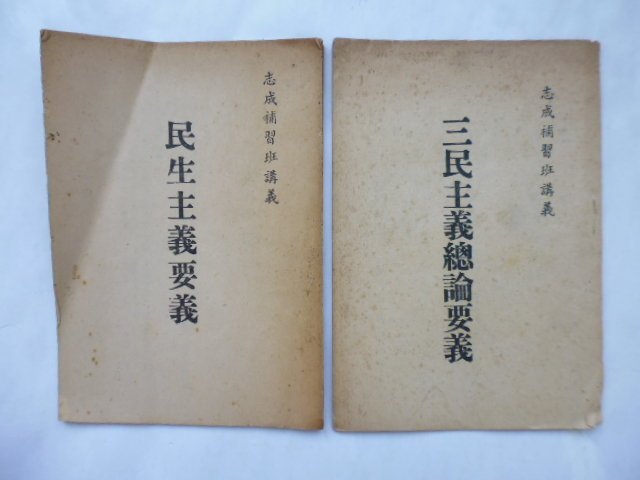 志成補習班講義
民生主義要義
志成補習班講義
三民主義總論要義